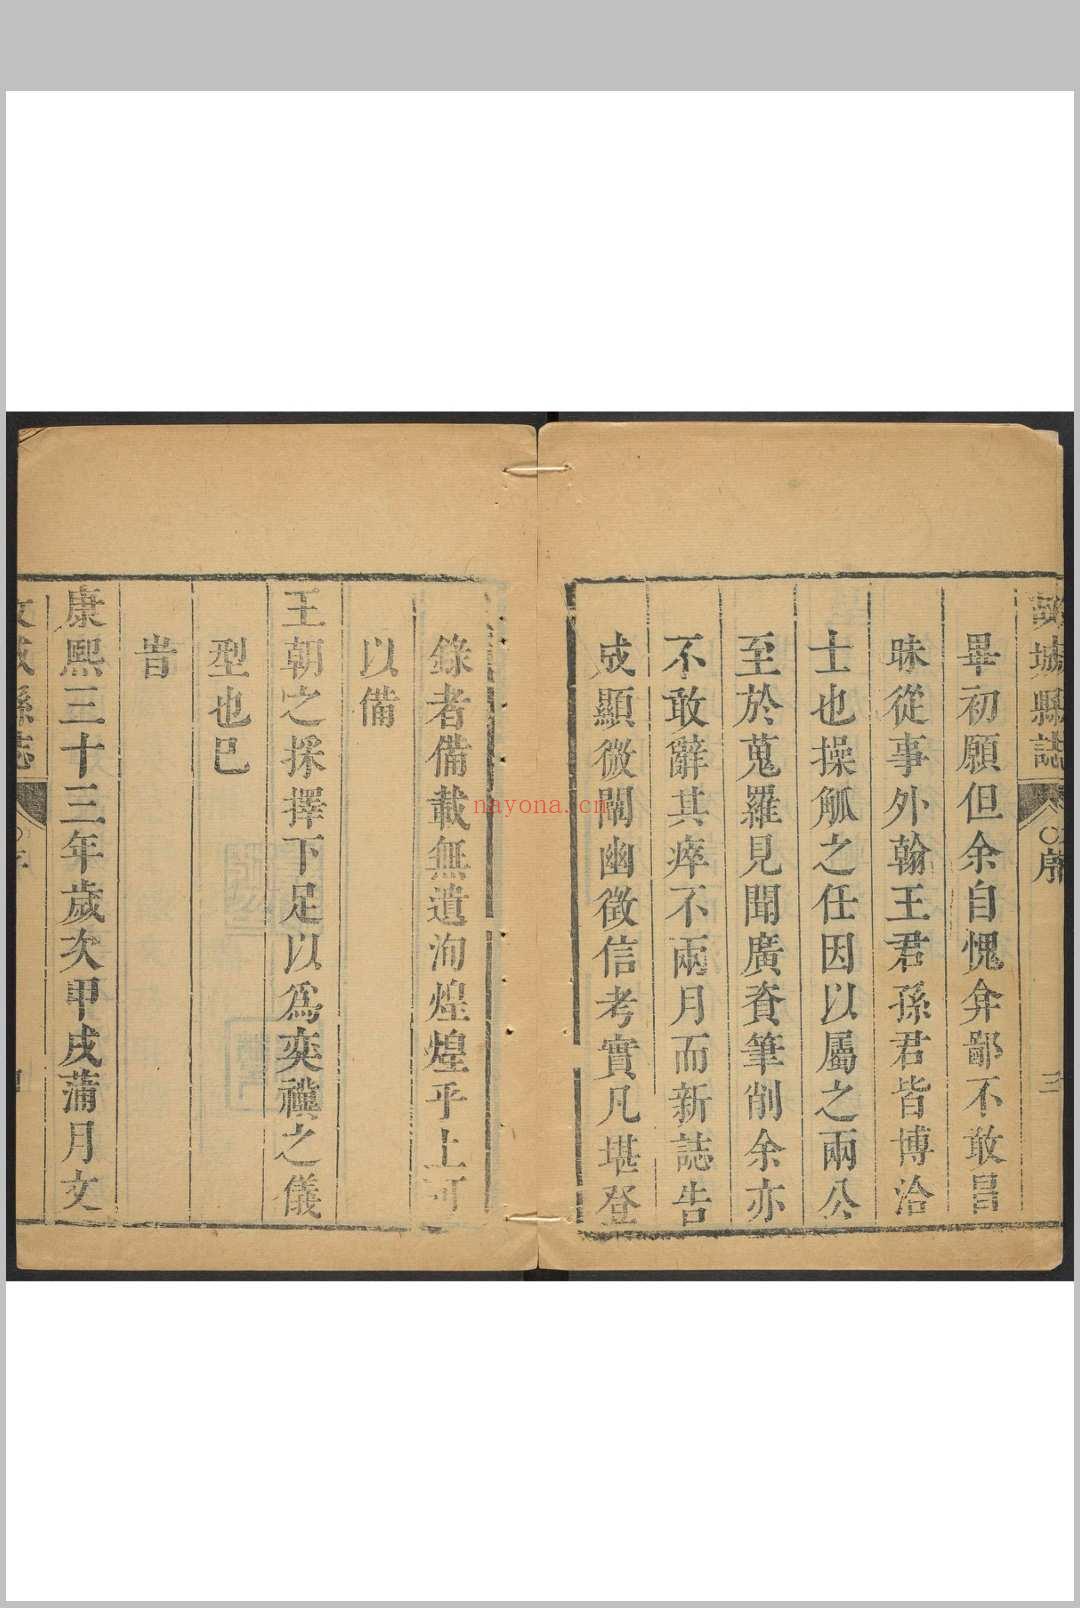 城縣誌 序 三
畢初願但余自愧弇鄙不敢昌
昧從事外翰王君孫君皆博洽
士也操觚之任因以屬之兩公
至於蒐羅見聞廣資筆削余亦
不敢辭其瘁不兩月而新誌告
成顯微闡幽徵信考實凡堪登
錄者備載無遺洵煌煌乎上可
以備
王朝之採擇下足以為奕禩之儀
型也巳
旹
康熙三十三年歲次甲戌蒲月文
nayona.cn